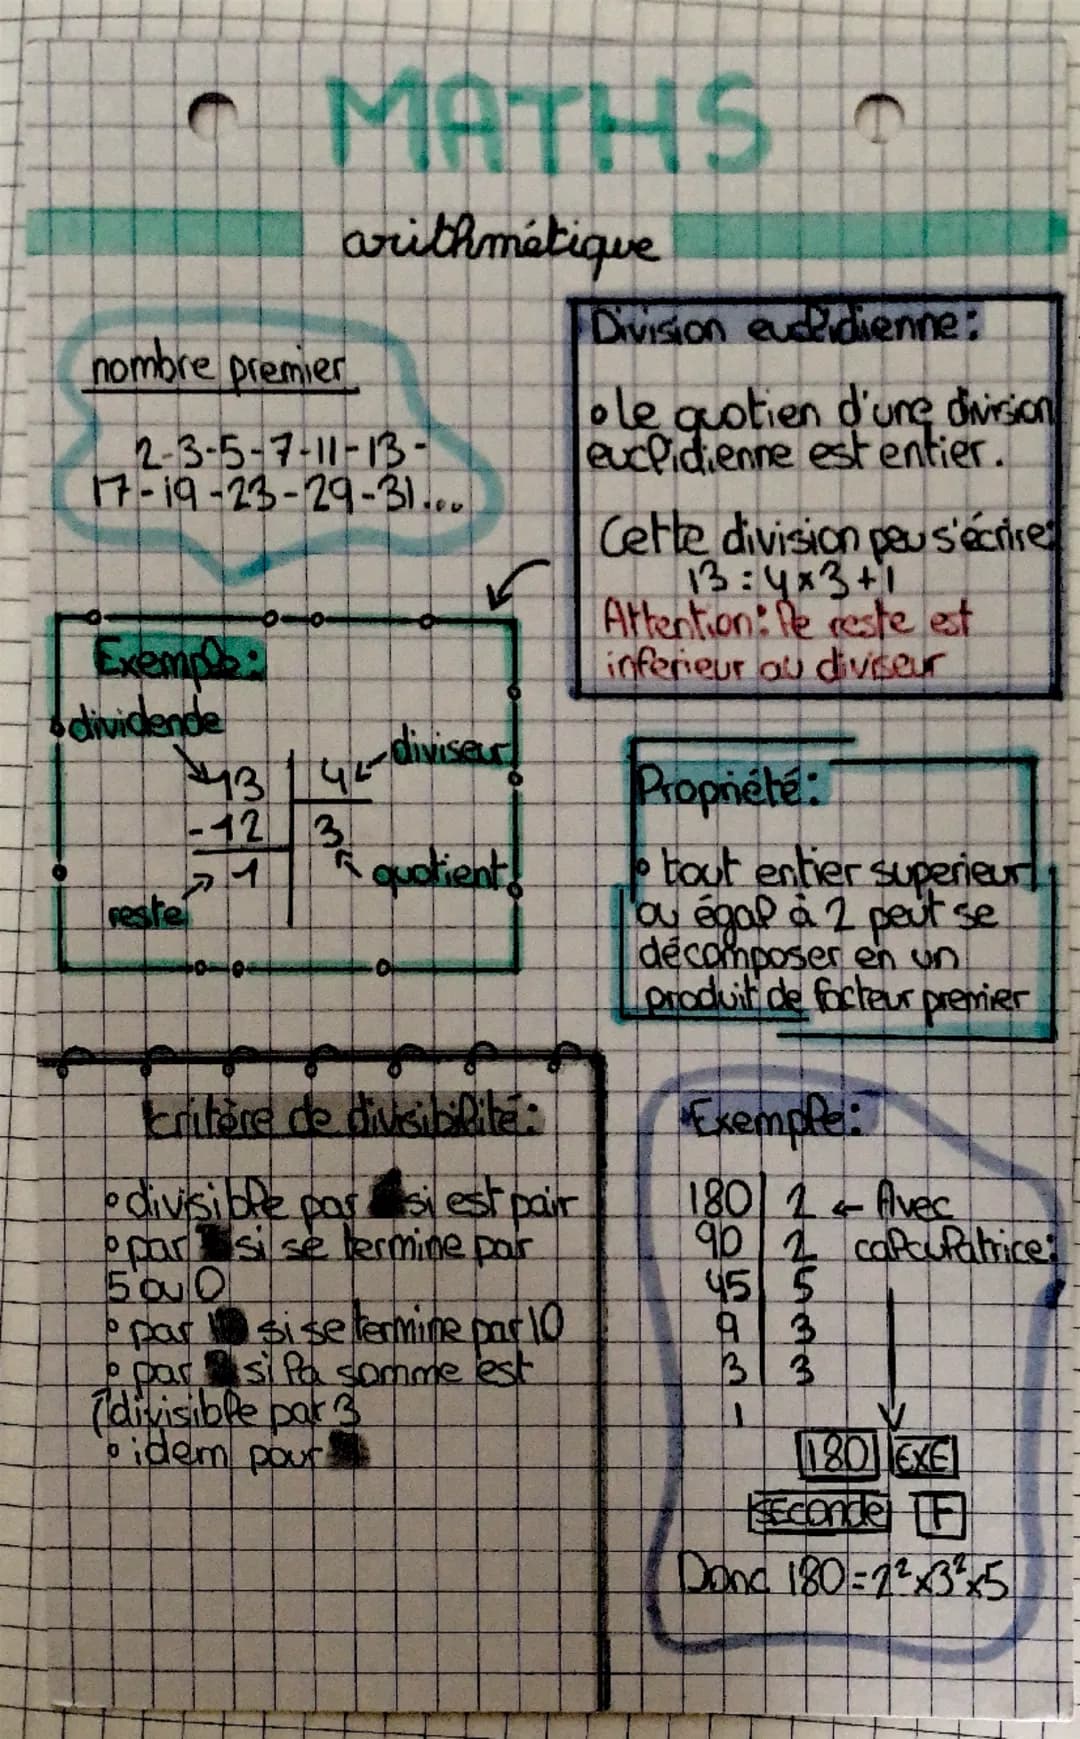 MATHS
arithmétique
nombre premier
2-3-5-7-11-13-
17-19-23-29-31...
Division euclidienne:
• le quotien d'une division
euclidienne est entier.
Cette division peu s'écrire:
13 : 4 x 3 + 1
Attention: le reste est
inferieur au diviseur
Exemple:
dividende
13 4 diviseur
-12 3
1 quotient
reste
Propriété:
• tout entier superieur
ou égal à 2 peut se
décomposer en un
produit de facteur premier
critère de divisibilité:
• divisible par si est pair
• par si se termine par
5 ou 0
• par si se termine par 10
• par si la somme est
divisible par 3
• idem pour
Exemple:
180 2 ← Avec
90 2 calculatrice:
45 5
9 3
3 3
1
180 EXE
seconde F
Donc 180=2²x3²x5